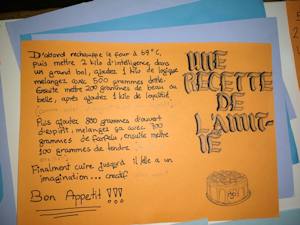 D'abord rechauppe le four à 59°C,
puis mettre 2 kilo d'intelligence dans
un grand bol, ajoutez 1 kilo de logique
melangez avec 500 grammes drôle.
Ensuite mettre 200 grammes de beau ou
belle, après ajoutez 1 kilo de loyalité
Puis ajoutez 800 grammes d'ouvert
d'esprit, melangez ça avec 700
grammes de farfelu, ensuite mettre
100 grammes de tendre.
Finalement cuire jusqu'a il/elle a un
imagination... creatif
Bon Appetit !!!
UNE
RECETTE
DE
L'AMIT-
IÉ